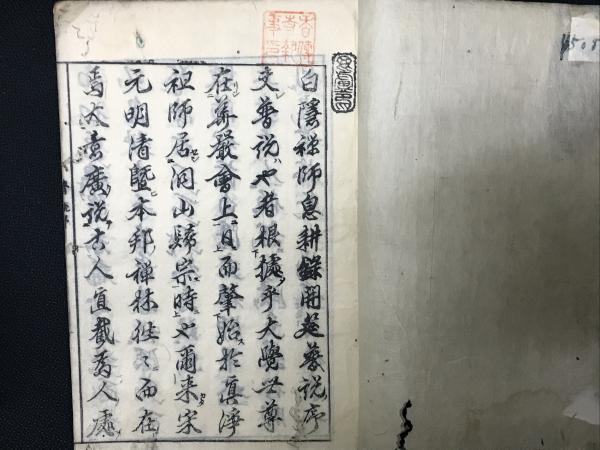 白隱禪師息耕錄開筵普說序
夫普說也者根據乎大覺世尊
在華嚴會上日而肇始於眞淨
祖師居洞山歸宗時也爾來宋
元明清曁本邦禪林往〻而在
焉大率廣說古人直截爲人處
4508